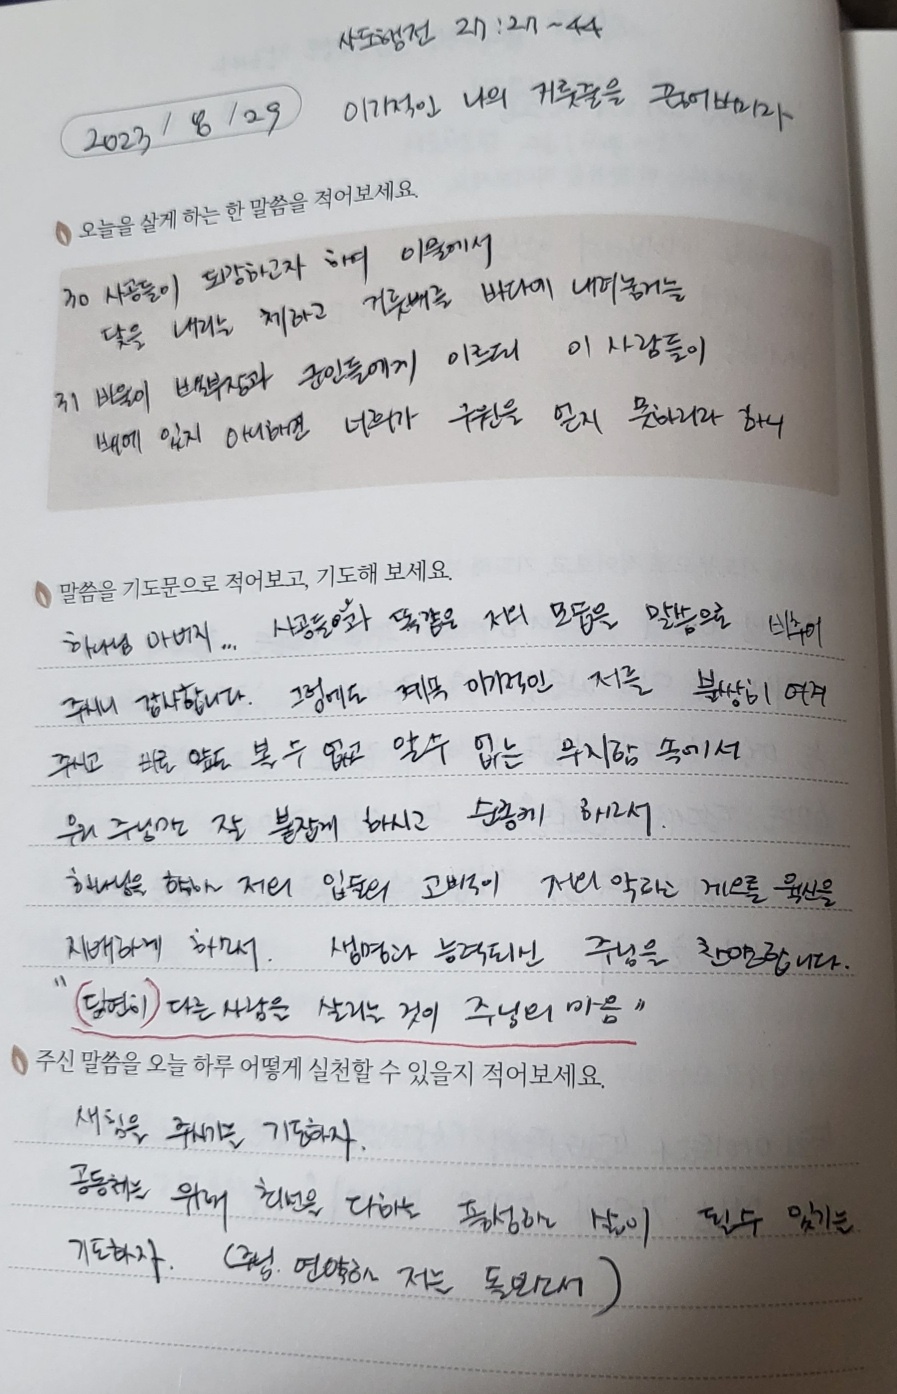 사도행전 27:27~44
2023/8/29
이기적인 나의 거룻줄을 끊어버리라
오늘을 살게 하는 한 말씀을 적어보세요.
30 사공들이 도망하고자 하여 이물에서
닻을 내리는 체하고 거룻배를 바다에 내려놓거늘
31 바울이 백부장과 군인들에게 이르되 이 사람들이
배에 있지 아니하면 너희가 구원을 얻지 못하리라 하니
말씀을 기도문으로 적어보고, 기도해 보세요.
하나님 아버지... 사공들과 똑같은 저의 모습을 말씀으로 비추어
주시니 감사합니다. 그럼에도 계속 이기적인 저를 불쌍히 여겨
주시고 바로 앞도 볼 수 없고 알수 없는 무지함 속에서
우리 주님만 꼭 붙잡게 하시고 순종케 하소서.
하나님을 향한 저의 입술의 고백이 저의 악하고 게으른 육신을
지배하게 하소서. 생명과 능력되신 주님을 찬양합니다.
"(담연히) 다른 사람을 살리는 것이 주님의 마음"
주신 말씀을 오늘 하루 어떻게 실천할 수 있을지 적어보세요.
새힘을 주시기를 기도하자.
공동체를 위해 최선을 다하는 풍성한 삶이 될수 있기를
기도하자. (주님. 연약한 저를 돌보소서)